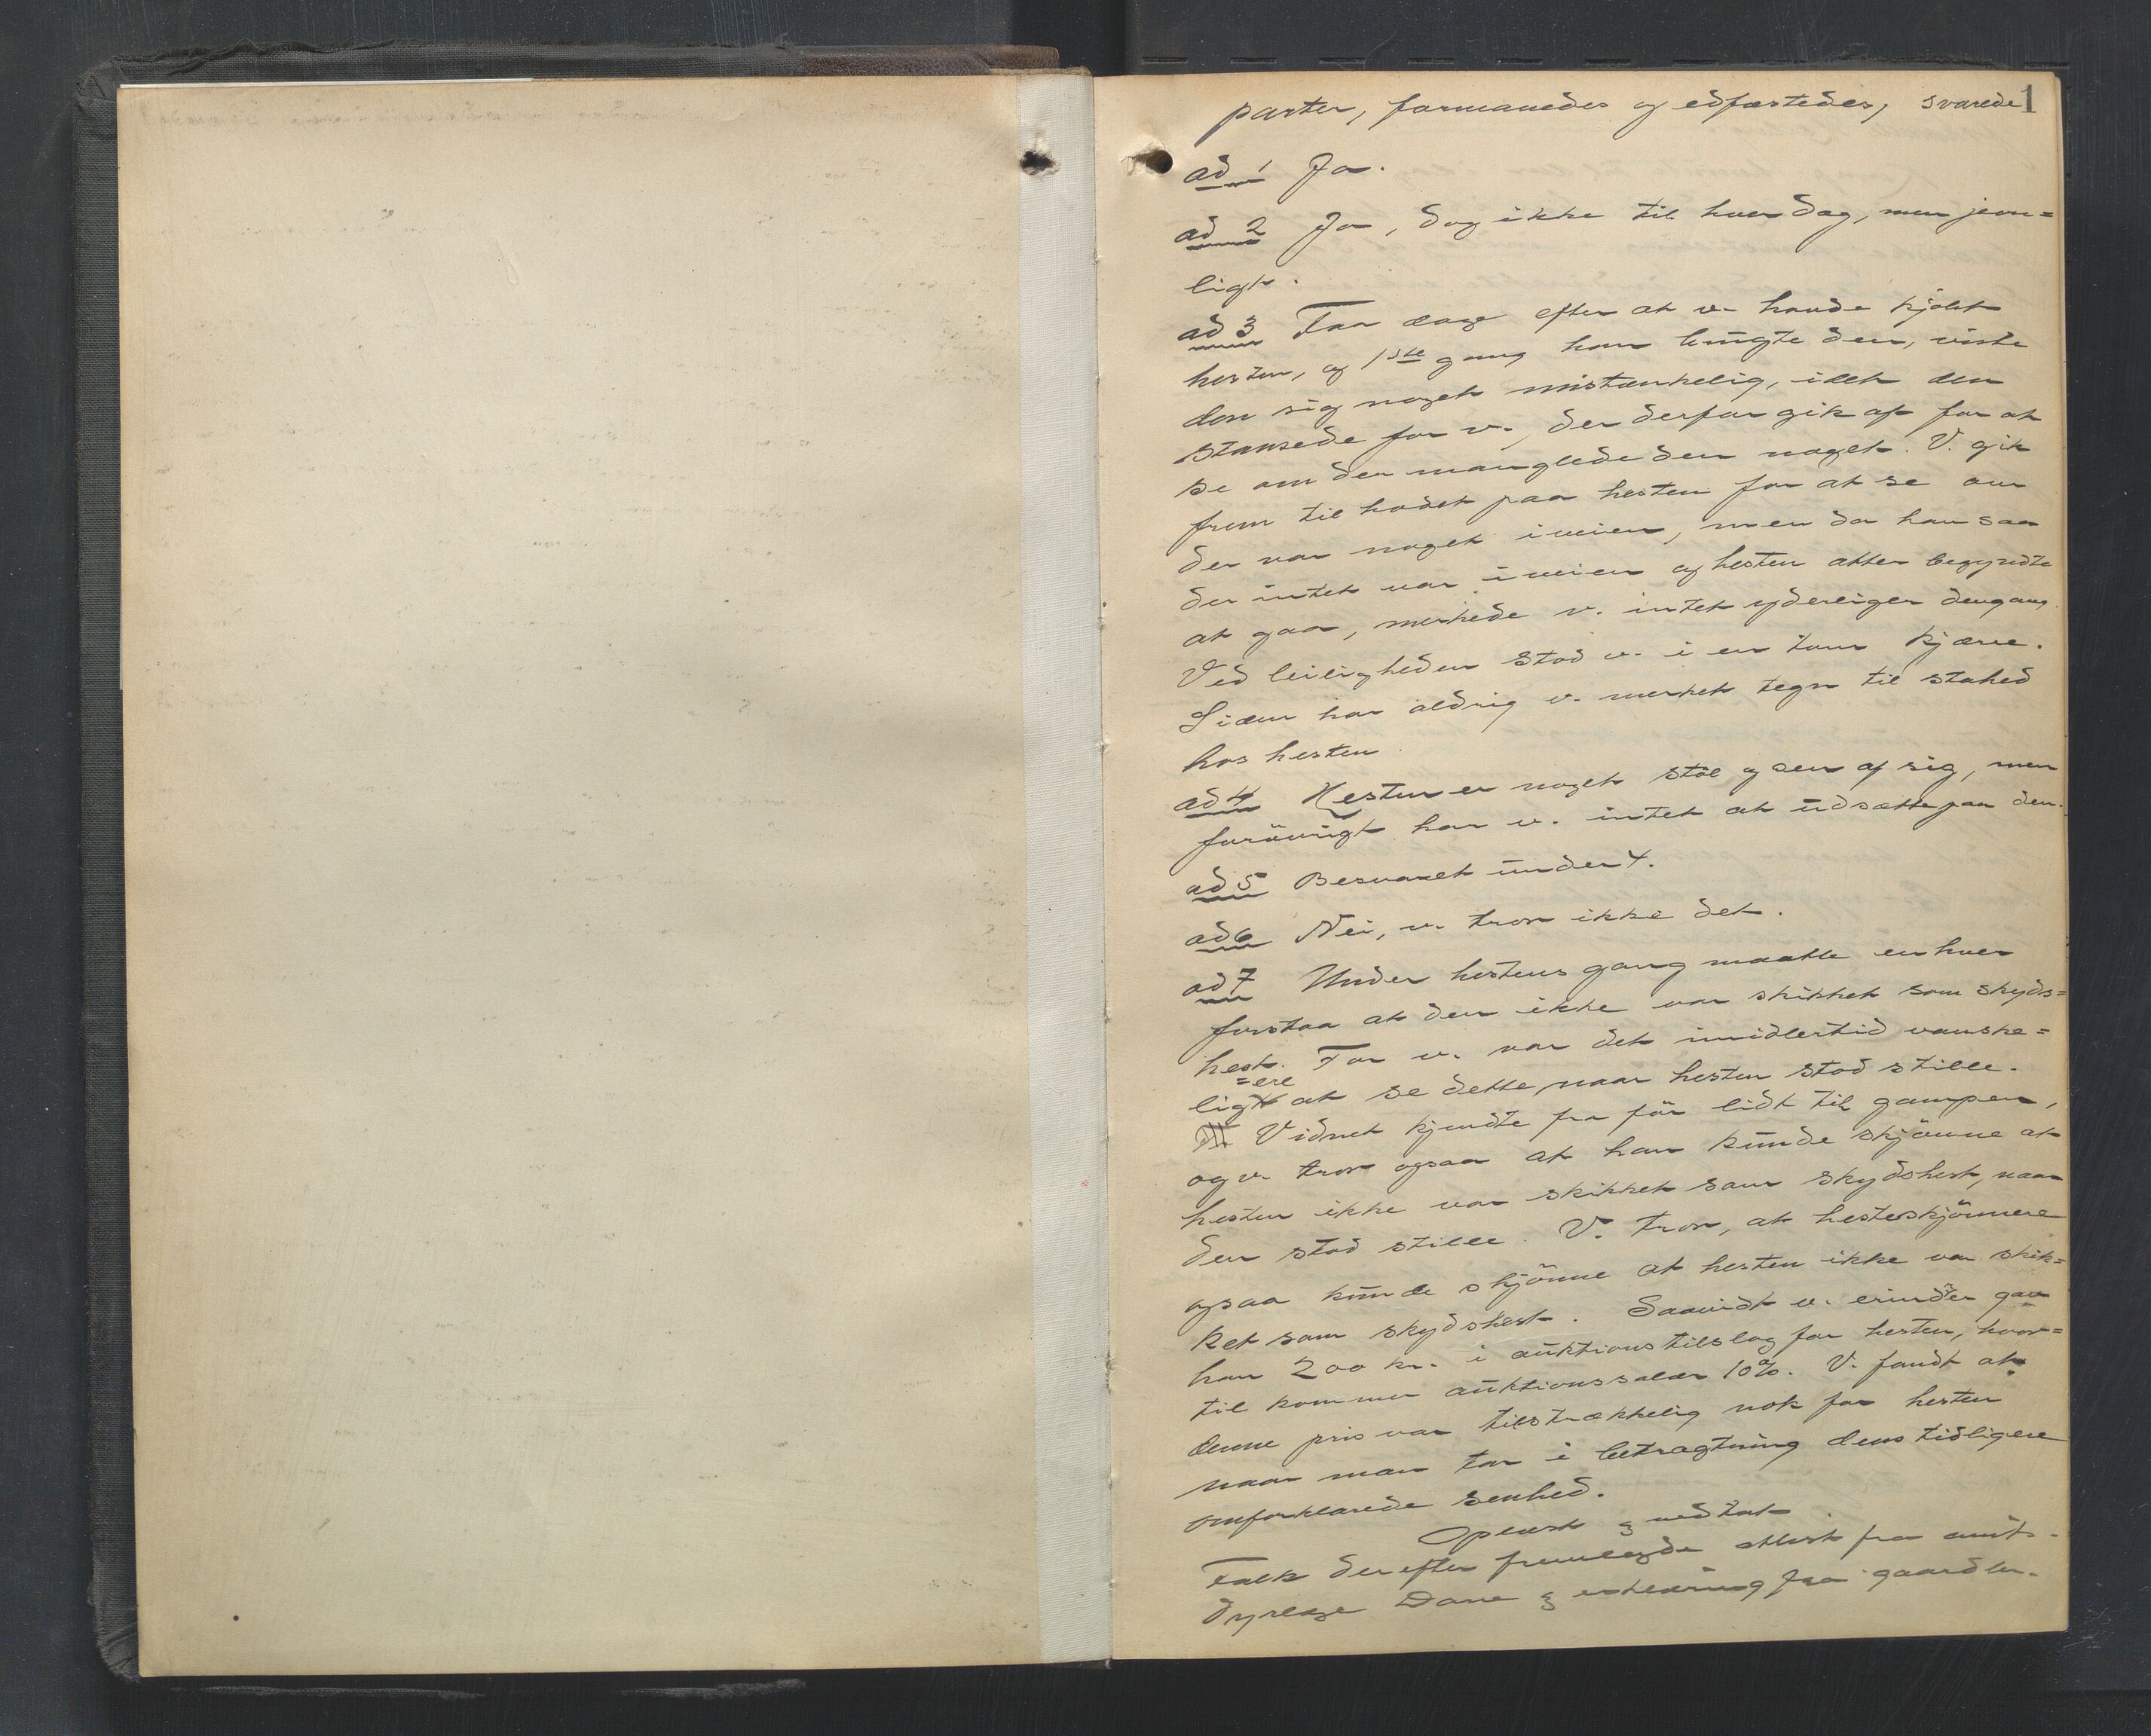 parter, formanedes og edfæstedes, svarede 1
ad 1 Ja.
ad 2 Ja, dog ikke til hver dag, men jevn=
ligt.
ad 3 Faa dage efter at v. havde kjøbt
hesten, og 1ste gang han brugte den, viste
den sig noget mistænkelig, idet den
stansede for v., der derfor gik af for at
se om der manglede den noget. V. gik
frem til hodet paa hesten for at se om
der var noget iveien, men da han saa
der intet var iveien og hesten atter begyndte
at gaa, merkede v. intet yderliger dengang.
Ved leiligheden stod v. i en tom kjærre.
Siden har aldrig v. merket tegn til stahed
hos hesten.
ad 4 Hesten er noget stöl og sen af sig, men
forövrigt har v. intet at udsætte paa den.
ad 5 Besvaret under 4.
ad 6 Nei, v. tror ikke det.
ad 7 Under hestens gang maatte enhver
forstaa at den ikke var skikket som skyds=
hest. For v. var det imidlertid vanske=
=ere
ligt at se dette, naar hesten stod stille.
Vidnet kjendte fra för lidt til gampen,
og v. tror ogsaa at han kunde skjönne at
hesten ikke var skikket som skydshest, naar
den stod stille. V. tror, at hesteskjönnere
ogsaa kunde skjönne at hesten ikke var skik=
ket som skydshest. Saavidt v. erindrer gav
han 200 kr. i auktionstilslag for hesten, hvor=
til kommer auktionssalær 10%. V. fandt at
denne pris var tilstrækkelig nok for hesten
naar man tar i betragtning dens tidligere
omforklarede senhed.
Oplæst & vedtat
Falk derefter fremlagde attest fra amts-
dyrlæge Dane & erklæring fra gaardbr.